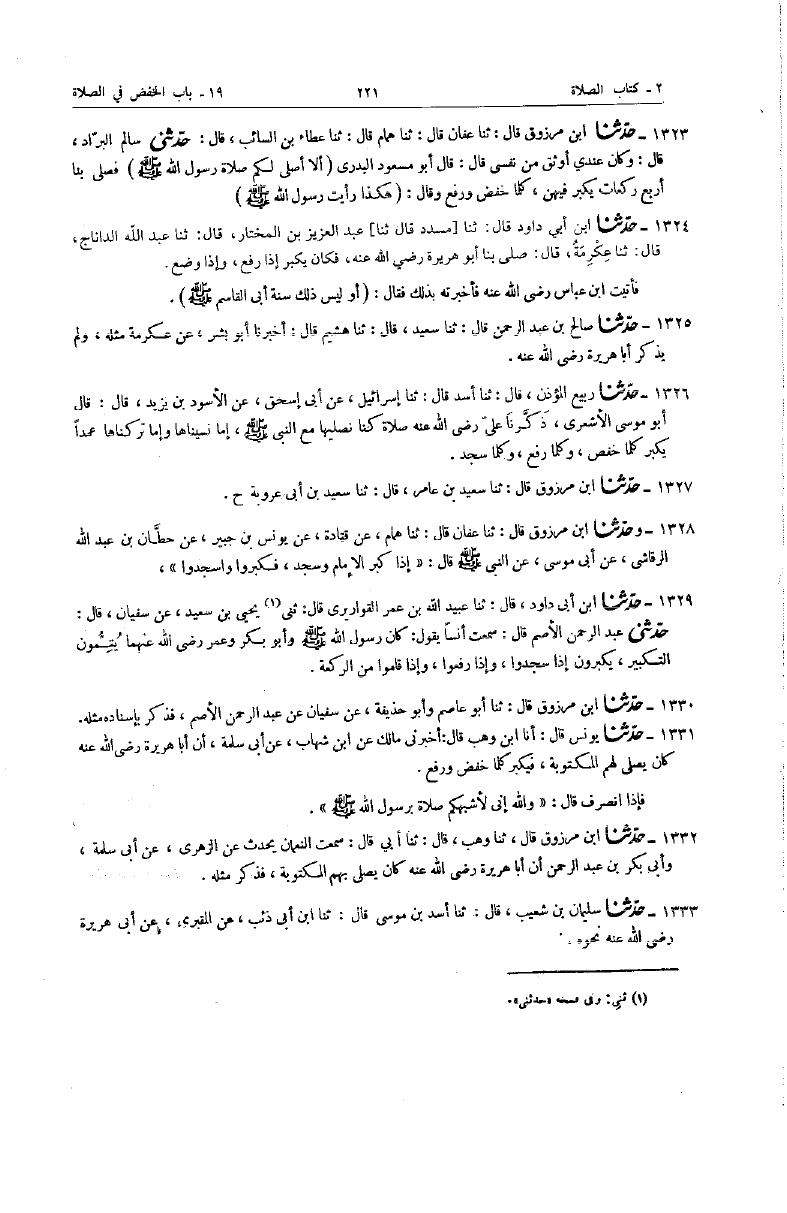 ٢ - كتاب الصلاة ٢٢١ ١٩ - باب الخفض في الصلاة
١٣٢٣ - حدّثنا ابن مرزوق قال : ثنا عفان قال : ثنا همام قال : ثنا عطاء بن السائب ، قال : حدّثنى سالم البرّاد ،
قال : وكان عندي أوثق من نفسى قال : قال أبو مسعود البدرى ( ألا أصلى لكم صلاة رسول الله ﷺ ) فصلى بنا
أربع ركعات يكبر فيهن ، كلما خفض ورفع وقال : ( هكذا رأيت رسول الله ﷺ )
١٣٢٤ - حدّثنا ابن أبي داود قال: ثنا [مسدد قال ثنا] عبد العزيز بن المختار، قال: ثنا عبد الله الداناج،
قال: ثنا عِكْرِمَةُ، قال: صلى بنا أبو هريرة رضي الله عنه، فكان يكبر إذا رفع، وإذا وضع.
فأتيت ابن عباس رضى الله عنه فأخبرته بذلك فقال : ( أو ليس ذلك سنة أبى القاسم ﷺ ) .
١٣٢٥ - حدّثنا صالح بن عبد الرحمن قال : ثنا سعيد ، قال : ثنا هشيم قال : أخبرنا أبو بشر ، عن عكرمة مثله ، ولم
يذكر أبا هريرة رضى الله عنه .
١٣٢٦ - حدّثنا ربيع المؤذن ، قال : ثنا أسد قال : ثنا إسرائيل ، عن أبى إسحق ، عن الأسود بن يزيد ، قال : قال
أبو موسى الأشعرى ، ذَكَّرَنَا علىّ رضى الله عنه صلاة كنا نصليها مع النبى ﷺ ، إما نسيناها وإما تركناها عمداً
يكبر كلما خفض ، وكلما رفع ، وكلما سجد .
١٣٢٧ - حدّثنا ابن مرزوق قال : ثنا سعيد بن عامر ، قال : ثنا سعيد بن أبى عروبة ح .
١٣٢٨ - وحدّثنا ابن مرزوق قال : ثنا عفان قال : ثنا همام ، عن قتادة ، عن يونس بن جبير ، عن حطَّان بن عبد الله
الرقاشى ، عن أبى موسى ، عن النبى ﷺ قال : « إذا كبر الإمام وسجد ، فكبروا واسجدوا » ،
١٣٢٩ - حدّثنا ابن أبى داود ، قال : ثنا عبيد الله بن عمر القواريرى قال: ثنى(١) يحيى بن سعيد ، عن سفيان ، قال :
حدّثنى عبد الرحمن الأصم قال : سمعت أنساً يقول: كان رسول الله ﷺ وأبو بكر وعمر رضى الله عنهما يُتِمُّون
التكبير ، يكبرون إذا سجدوا ، وإذا رفعوا ، وإذا قاموا من الركعة .
١٣٣٠ - حدّثنا ابن مرزوق قال : ثنا أبو عاصم وأبو حذيفة ، عن سفيان عن عبد الرحمن الأصم ، فذكر بإسناده مثله.
١٣٣١ - حدّثنا يونس قال : أنا ابن وهب قال: أخبرنى مالك عن ابن شهاب ، عن أبى سلمة ، أن أبا هريرة رضى الله عنه
كان يصلى لهم المكتوبة ، فيكبر كلما خفض ورفع .
فإذا انصرف قال : « والله إنى لأشبهكم صلاة برسول الله ﷺ » .
١٣٣٢ - حدّثنا ابن مرزوق قال ، ثنا وهب ، قال : ثنا أبي قال : سمعت النعمان يحدث عن الزهرى ، عن أبى سلمة ،
وأبى بكر بن عبد الرحمن أن أبا هريرة رضى الله عنه كان يصلى بهم المكتوبة ، فذكر مثله .
١٣٣٣ - حدّثنا سليمان بن شعيب ، قال : ثنا أسد بن موسى قال : ثنا ابن أبى ذئب ، عن المقبرى ، عن أبى هريرة
رضى الله عنه نحوه .
(١) ثنى: وفى نسخة «حدثنى».